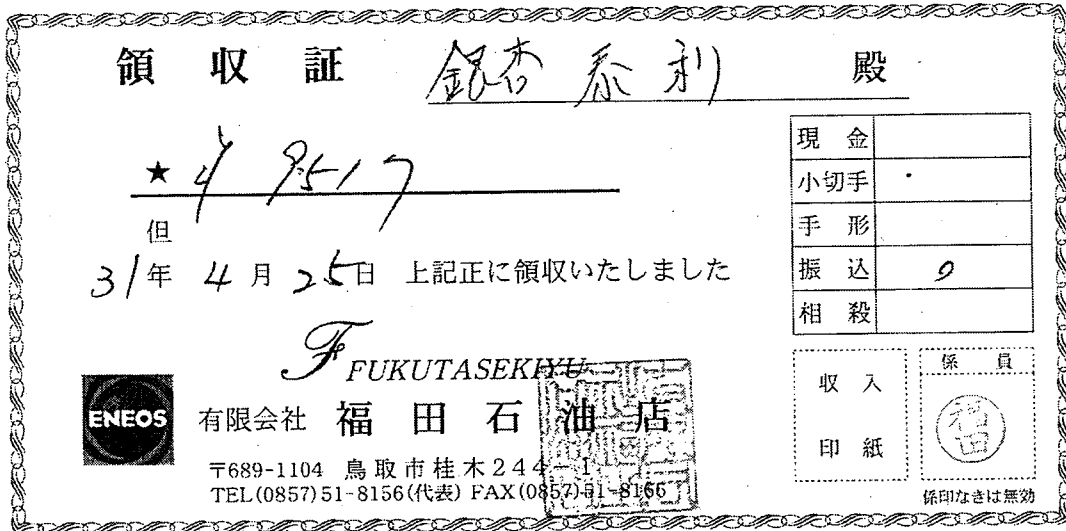 領収証 銀杏 泰利 殿
★ ¥ 9517
但
31年 4月 25日 上記正に領収いたしました
現金
小切手
手形
振込 0
相殺
F FUKUTASEKIYU
ENEOS
有限会社 福田石油店
〒689-1104 鳥取市桂木244-1
TEL(0857)51-8156(代表) FAX(0857)51-8166
収入
印紙
係員
福田
係印なきは無効